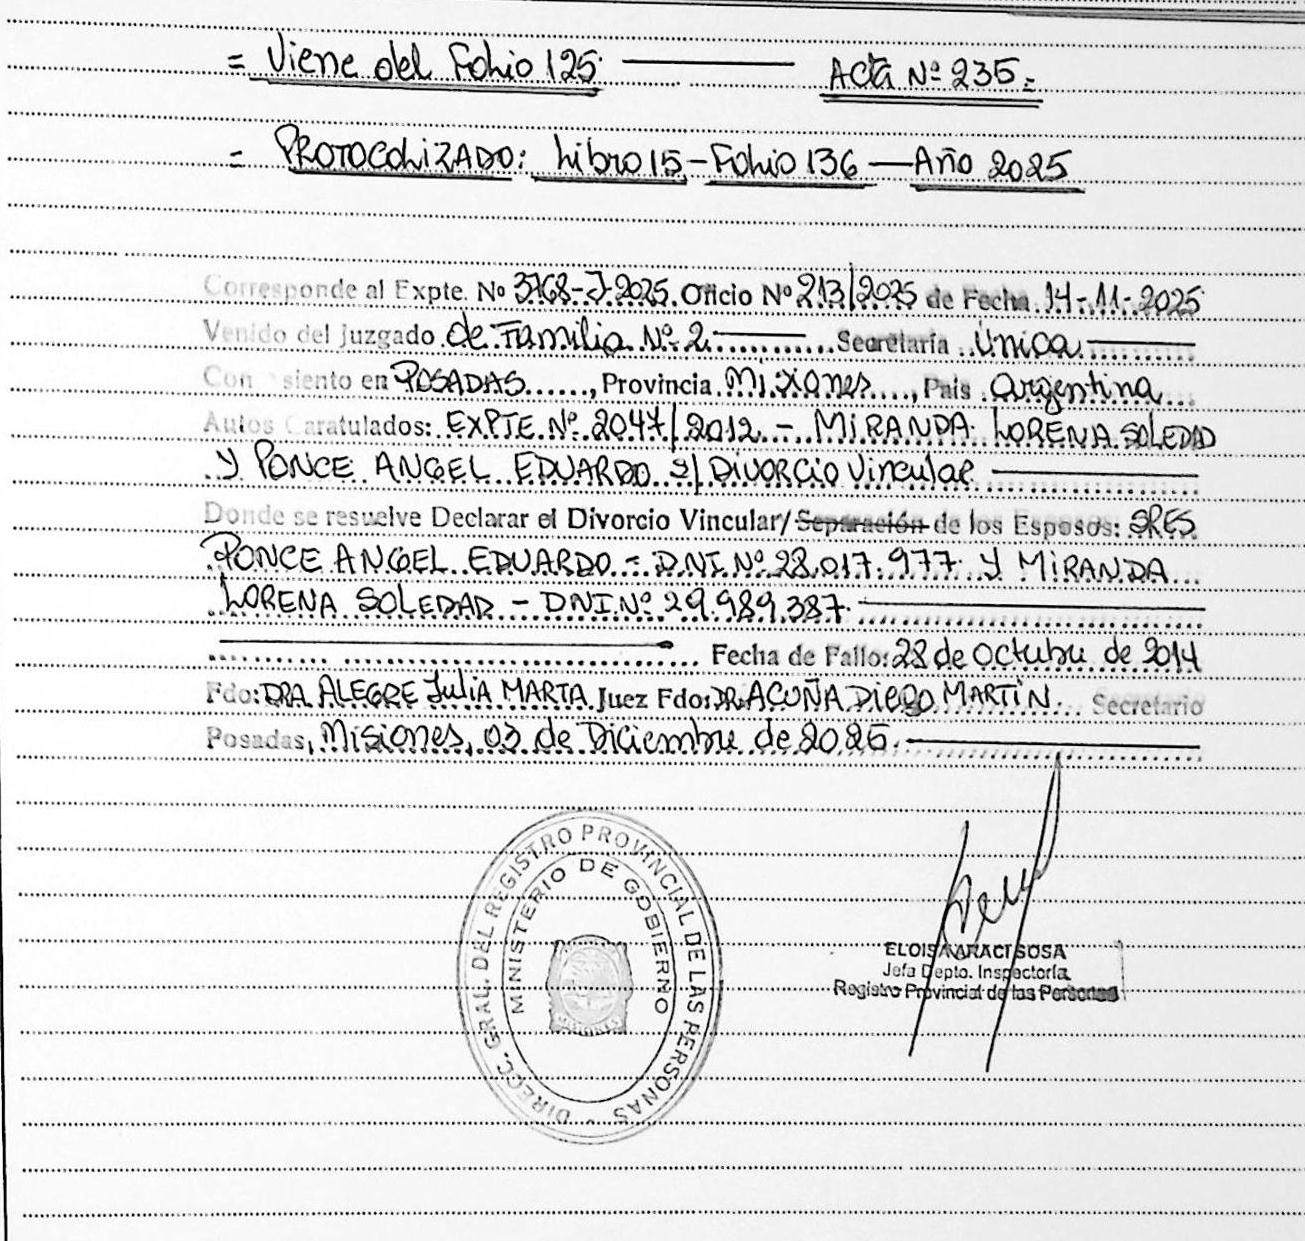 = Viene del Folio 125 — Acta Nº 235=
= PROTOCOLIZADO: Libro 15 - Folio 136 — Año 2025
Corresponde al Expte. Nº 3768-J-2025. Oficio Nº 213/2025 de Fecha 14-11-2025
Venido del Juzgado de Familia Nº 2 Secretaría Única
Con siento en POSADAS, Provincia Misiones, País Argentina
Autos Caratulados: EXPTE. Nº 2047/2012 - MIRANDA LORENA SOLEDAD
Y PONCE ANGEL EDUARDO S/ DIVORCIO Vincular
Donde se resuelve Declarar el Divorcio Vincular/Separación de los Esposos: SRES
PONCE ANGEL EDUARDO - DNI Nº 28.017.977 Y MIRANDA
LORENA SOLEDAD - DNI. Nº 29.989.387.
Fecha de Fallo: 28 de Octubre de 2014
Fdo: DRA. ALEGRE Julia MARTA Juez Fdo: DR. ACUÑA DIEGO MARTÍN. Secretario
Posadas, Misiones, 03 de Diciembre de 2025.
DIRECC. GRAL. DEL REGISTRO PROVINCIAL DE LAS PERSONAS -
MINISTERIO DE GOBIERNO
MISIONES
ELOISA ARACI SOSA
Jefa Depto. Inspectoría
Registro Provincial de las Personas